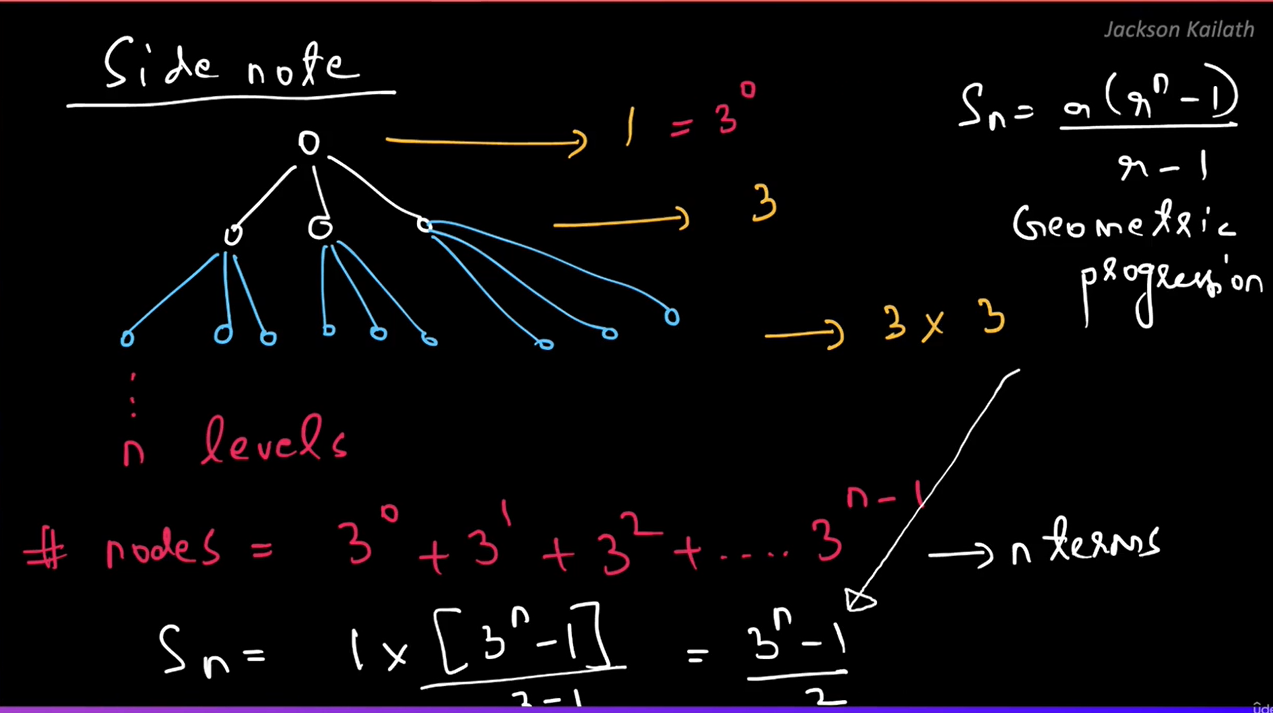 Jackson Kailath
Side note
1 = 3^0
Sn = a(r^n - 1) / r - 1
Geometric
progression
3
3 x 3
⋮
n levels
# nodes = 3^0 + 3^1 + 3^2 + .... 3^(n-1) → n terms
Sn = 1 x [3^n - 1] / 3-1 = 3^n - 1 / 2